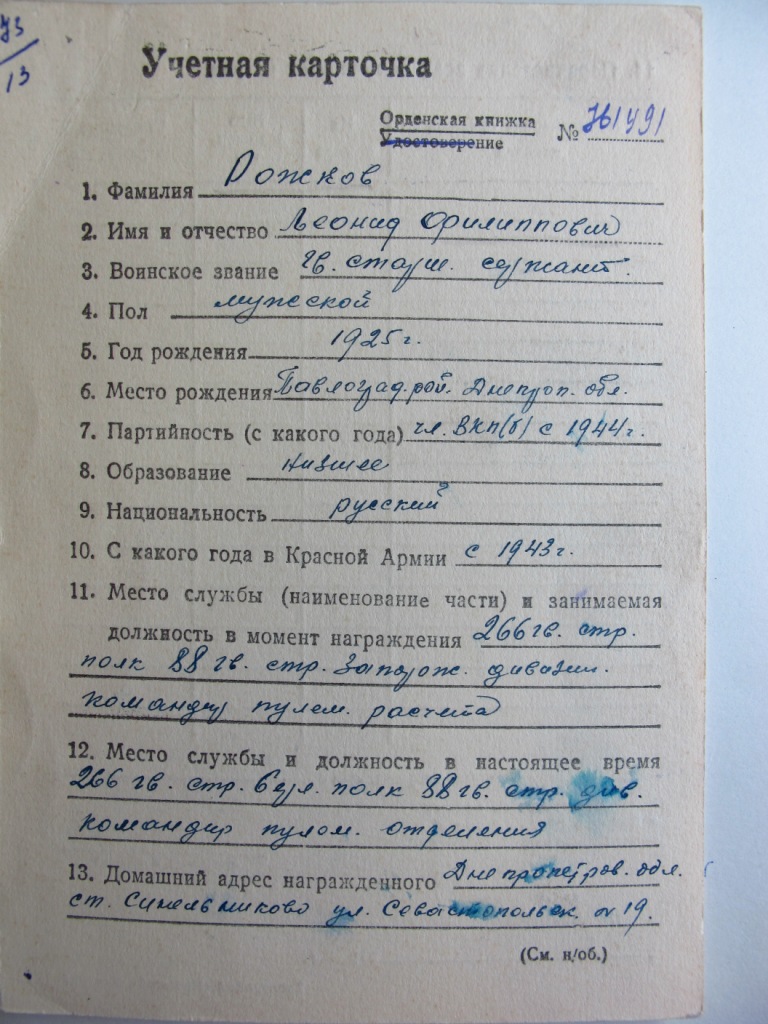 73
13
Учетная карточка
Орденская книжка
Удостоверение № 761491
1. Фамилия Рожков
2. Имя и отчество Леонид Филиппович
3. Воинское звание гв. старш. сержант.
4. Пол мужской
5. Год рождения 1925 г.
6. Место рождения Павлоград. рой. Днепроп. обл.
7. Партийность (с какого года) чл. ВКП(б) с 1944 г.
8. Образование низшее
9. Национальность русский
10. С какого года в Красной Армии с 1943 г.
11. Место службы (наименование части) и занимаемая
должность в момент награждения 266 гв. стр.
полк 88 гв. стр. Запорож. дивизии.
командир пулем. расчета
12. Место службы и должность в настоящее время
266 гв. стр. берл. полк 88 гв. стр. див.
командир пулем. отделения
13. Домашний адрес награжденного Днепропетров. обл.
ст. Синельниково ул. Севастопольск. № 19.
(См. н/об.)